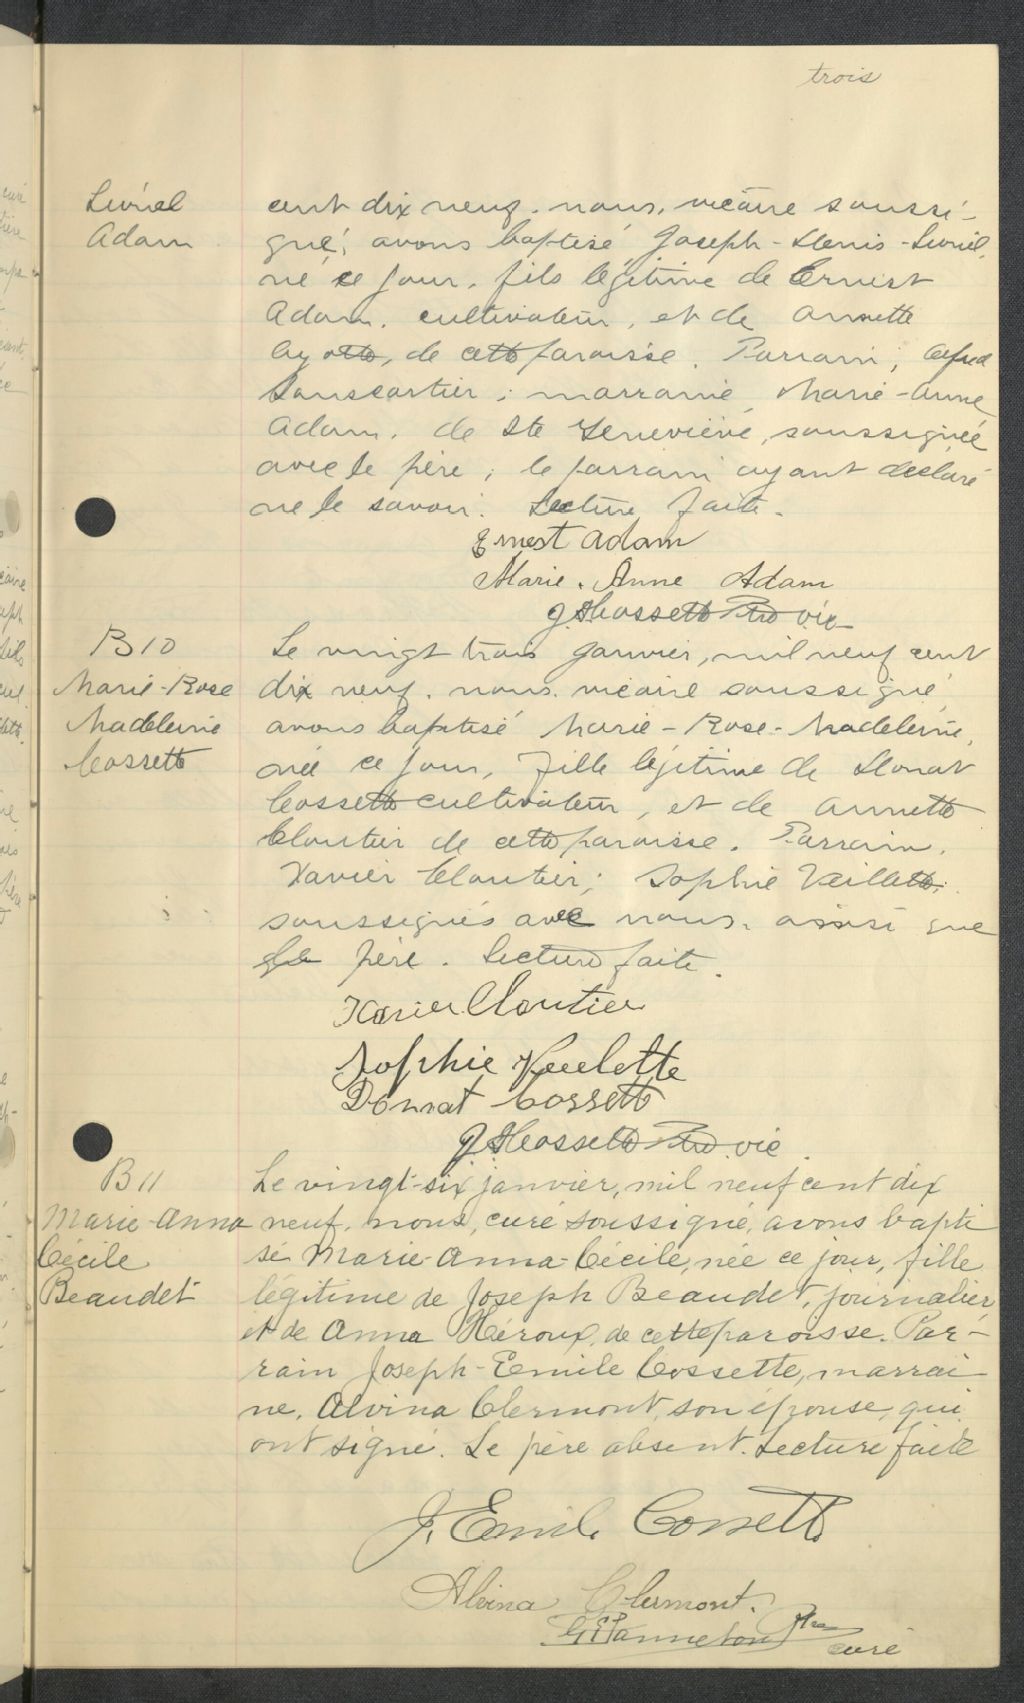 trois
Liviel
Adam
cent dix neuf. nous, vicaire soussi-
gné, avons baptisé Joseph-Denis-Liviel,
né ce jour, fils légitime de Ernest
Adam, cultivateur, et de Annette
Ayotte, de cette paroisse. Parrain, Alfred
Sanscartier; marraine, Marie-Anne
Adam, de Ste Geneviève, soussignée
avec le père; le parrain ayant déclaré
ne le savoir. Lecture faite.
Ernest Adam
Marie. Anne Adam
Cossette Ptre vic
B10
Marie-Rose
Madeleine
Cossette
Le vingt trois Janvier, mil neuf cent
dix neuf, nous, vicaire soussigné
avons baptisé Marie-Rose-Madeleine,
née ce jour, fille légitime de Donat
Cossette cultivateur, et de Annette
Cloutier de cette paroisse. Parrain,
Xavier Cloutier; Sophie Veillette,
soussignés avec nous, ainsi que
le père. Lecture faite.
Xavier Cloutier
Sophie Veillette
Donat Cossette
Cossette Ptre vic.
B11
Marie-Anna
Cécile
Beaudet
Le vingt-six janvier, mil neuf cent dix
neuf, nous, curé soussigné, avons bapti
sé Marie-Anna-Cécile, née ce jour, fille
légitime de Joseph Beaudet, journalier
et de Anna Héroux, de cette paroisse. Par-
rain Joseph-Emile Cossette, marrai
ne, Alvina Clermont, son épouse, qui
ont signé. Le père absent. Lecture faite
J. Emile Cossette
Alvina Clermont.
Panneton Ptre
curé